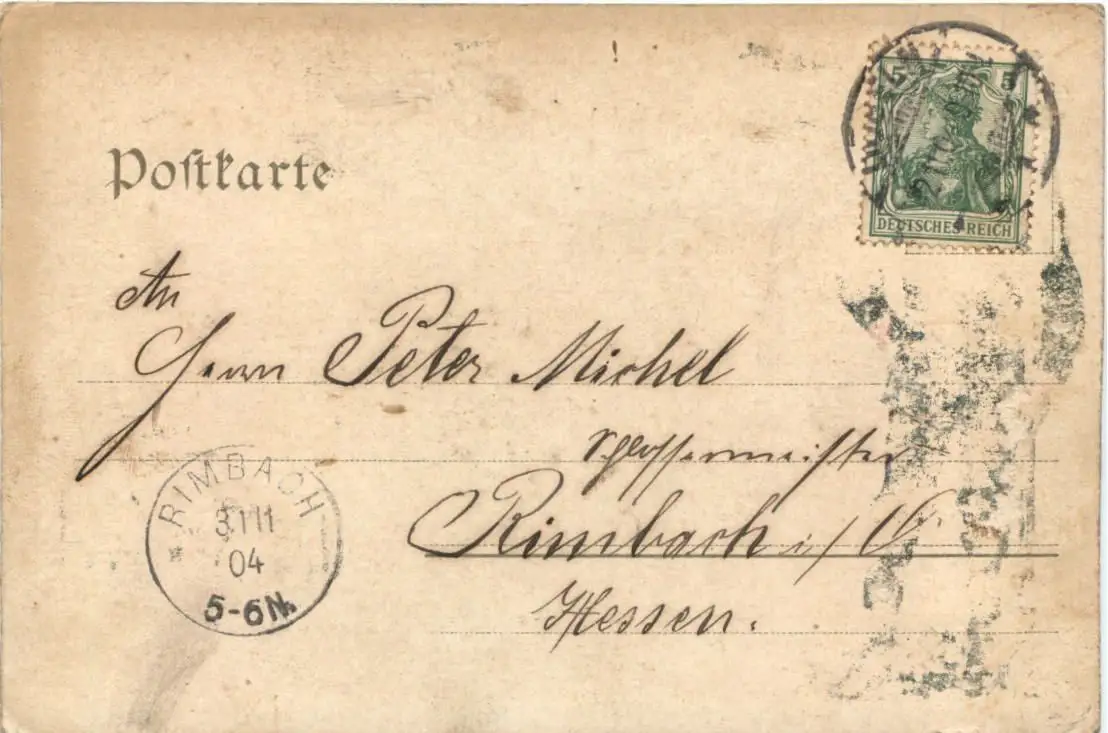 Postkarte
5 5
DEUTSCHES REICH
An
Herrn Peter Michel
Schlossermeister
Rimbach i/O
Hessen.
RIMBACH
3 11
04
5-6N.